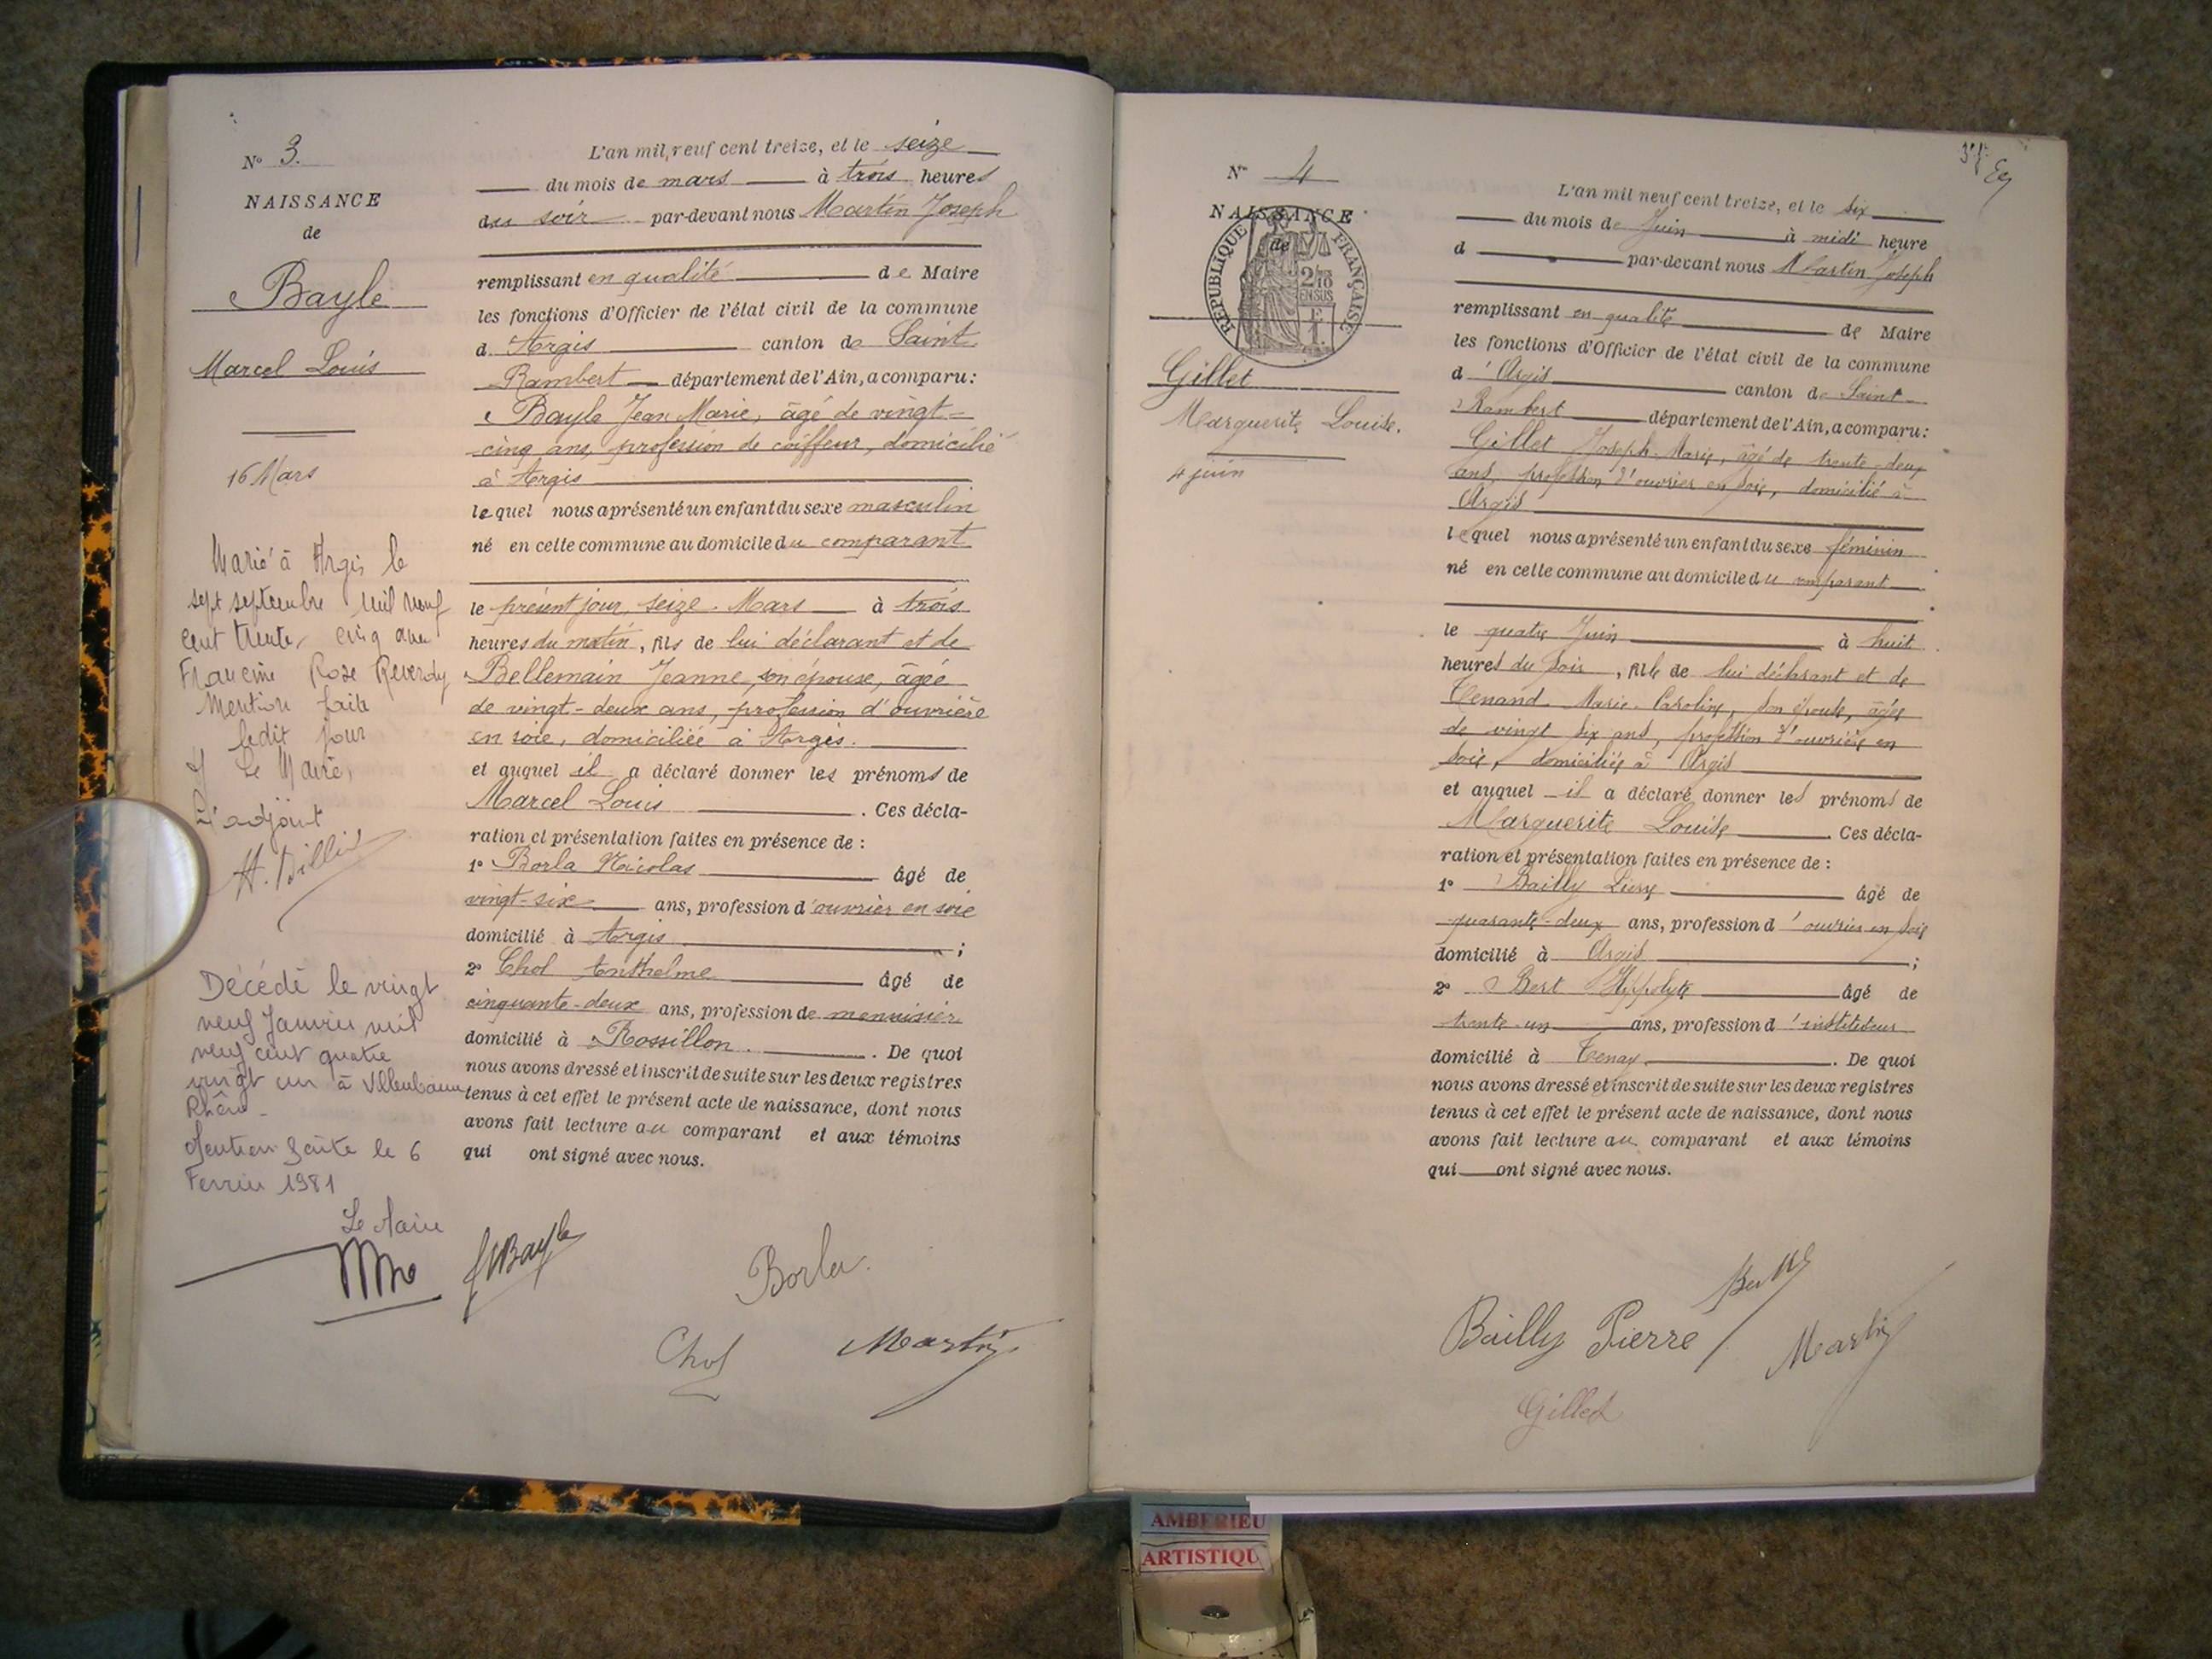 N° 3.
NAISSANCE
de
Bayle
Marcel Louis
16 Mars
Marié à Argis le
sept septembre mil neuf
cent trente cinq avec
Francine Rose Reverdy
Mention faite
ledit jour
Le Maire,
L'adjoint
Décédé le vingt
neuf Janvier mil
neuf cent quatre
vingt un à Villeurbanne
Rhône -
Mention faite le 6
Fevrier 1981
Le Maire
L'an mil neuf cent treize, et le seize
du mois de mars à trois heures
du soir par-devant nous Martin Joseph
remplissant en qualité de Maire
les fonctions d'Officier de l'état civil de la commune
d'Argis canton de Saint
Rambert département de l'Ain, a comparu :
Bayle Jean Marie, âgé de vingt-
cinq ans, profession de coiffeur, domicilié
à Argis
lequel nous a présenté un enfant du sexe masculin
né en cette commune au domicile du comparant
le présent jour, seize Mars à trois
heures du matin, fils de lui déclarant et de
Bellemain Jeanne, son épouse, âgée
de vingt-deux ans, profession d'ouvrière
en soie, domiciliée à Argis.
et auquel il a déclaré donner les prénoms de
Marcel Louis . Ces décla-
ration et présentation faites en présence de :
1° Borla Nicolas âgé de
vingt-six ans, profession d'ouvrier en soie
domicilié à Argis ;
2° Chol Anthelme âgé de
cinquante-deux ans, profession de menuisier
domicilié à Rossillon. . De quoi
nous avons dressé et inscrit de suite sur les deux registres
tenus à cet effet le présent acte de naissance, dont nous
avons fait lecture au comparant et aux témoins
qui ont signé avec nous.
Bayle
Borla
Chol
Martin
N° 4
NAISSANCE
de
REPUBLIQUE FRANÇAISE
2/10
EN SUS
Gillet
Marguerite Louise.
4 juin
L'an mil neuf cent treize, et le six
du mois de Juin à midi heure
d par-devant nous Martin Joseph
remplissant en qualité de Maire
les fonctions d'Officier de l'état civil de la commune
d'Argis canton de Saint
Rambert département de l'Ain, a comparu :
Gillet Joseph-Marie, âgé de trente-deux
ans, profession d'ouvrier en soie, domicilié à
Argis
lequel nous a présenté un enfant du sexe féminin
né en cette commune au domicile du comparant
le quatre Juin à huit
heures du soir, fille de lui déclarant et de
Tenand Marie-Caroline, son épouse, âgée
de vingt six ans, profession d'ouvrière en
soie, domiciliée à Argis
et auquel il a déclaré donner les prénoms de
Marguerite Louise . Ces décla-
ration et présentation faites en présence de :
1° Bailly Pierre âgé de
quarante-deux ans, profession d'ouvrier en soie
domicilié à Argis ;
2° Bert Hippolyte âgé de
trente-un ans, profession d'instituteur
domicilié à Tenay . De quoi
nous avons dressé et inscrit de suite sur les deux registres
tenus à cet effet le présent acte de naissance, dont nous
avons fait lecture au comparant et aux témoins
qui ont signé avec nous.
Bailly Pierre
Martin
Gillet
AMBERIEU
ARTISTIQU